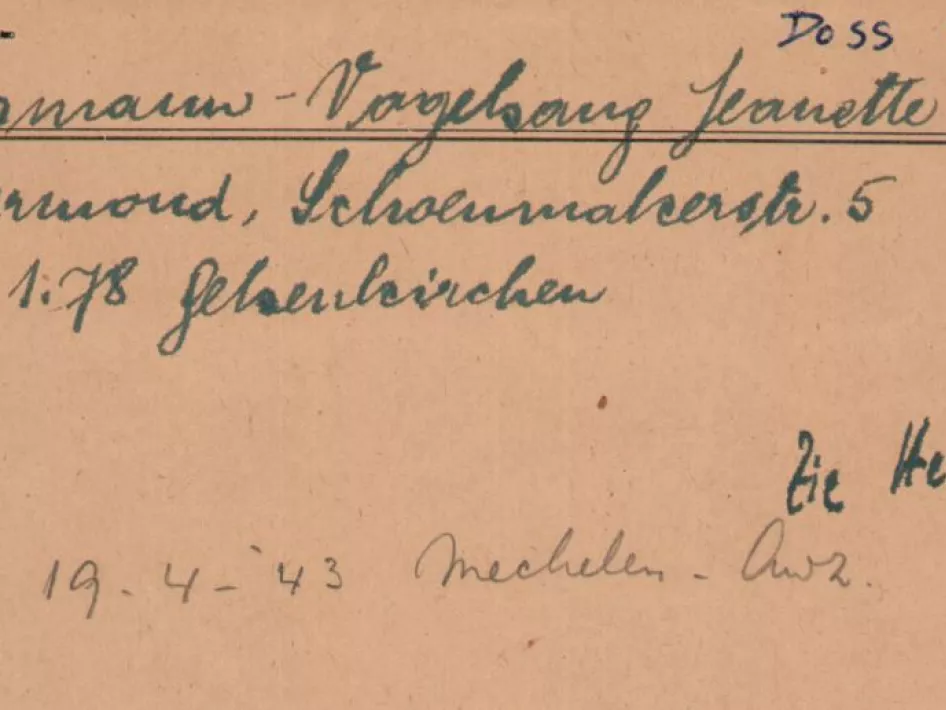 Doss
rmann - Vogelsang Jeanette
rmond, Schoenmakerstr. 5
1.78 Gelsenkirchen
Zie He
19-4-43 Mechelen - Auz.